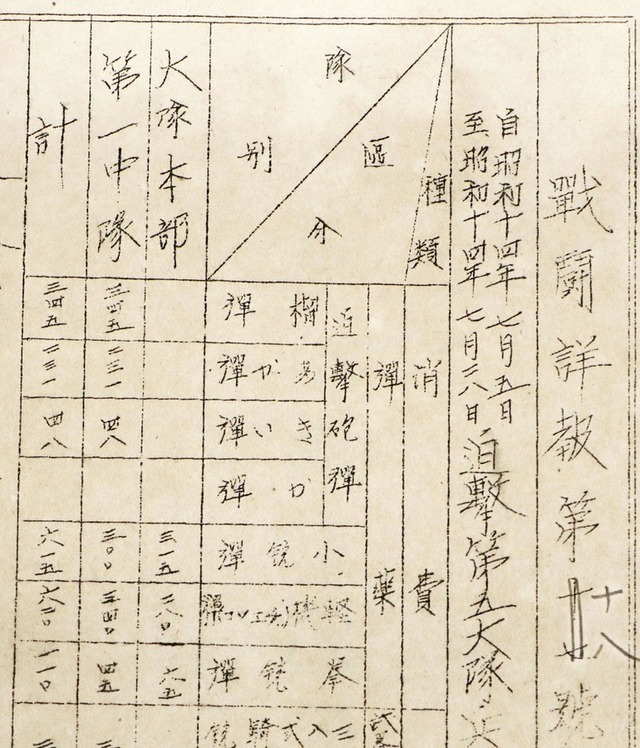 戰鬪詳報第十八號
自昭和十四年七月五日
至昭和十四年七月二八日
迫擊第五大隊
隊
區
別
分
種類
消費
彈藥
迫擊砲彈
榴彈
あか彈
きい彈
か彈
小銃彈
輕機
拳銃彈
三八式騎銃
大隊本部
三一五
二八〇
六五
第一中隊
三四五
二三一
四八
三〇〇
三四〇
四五
計
三四五
二三一
四八
六一五
六二〇
一一〇